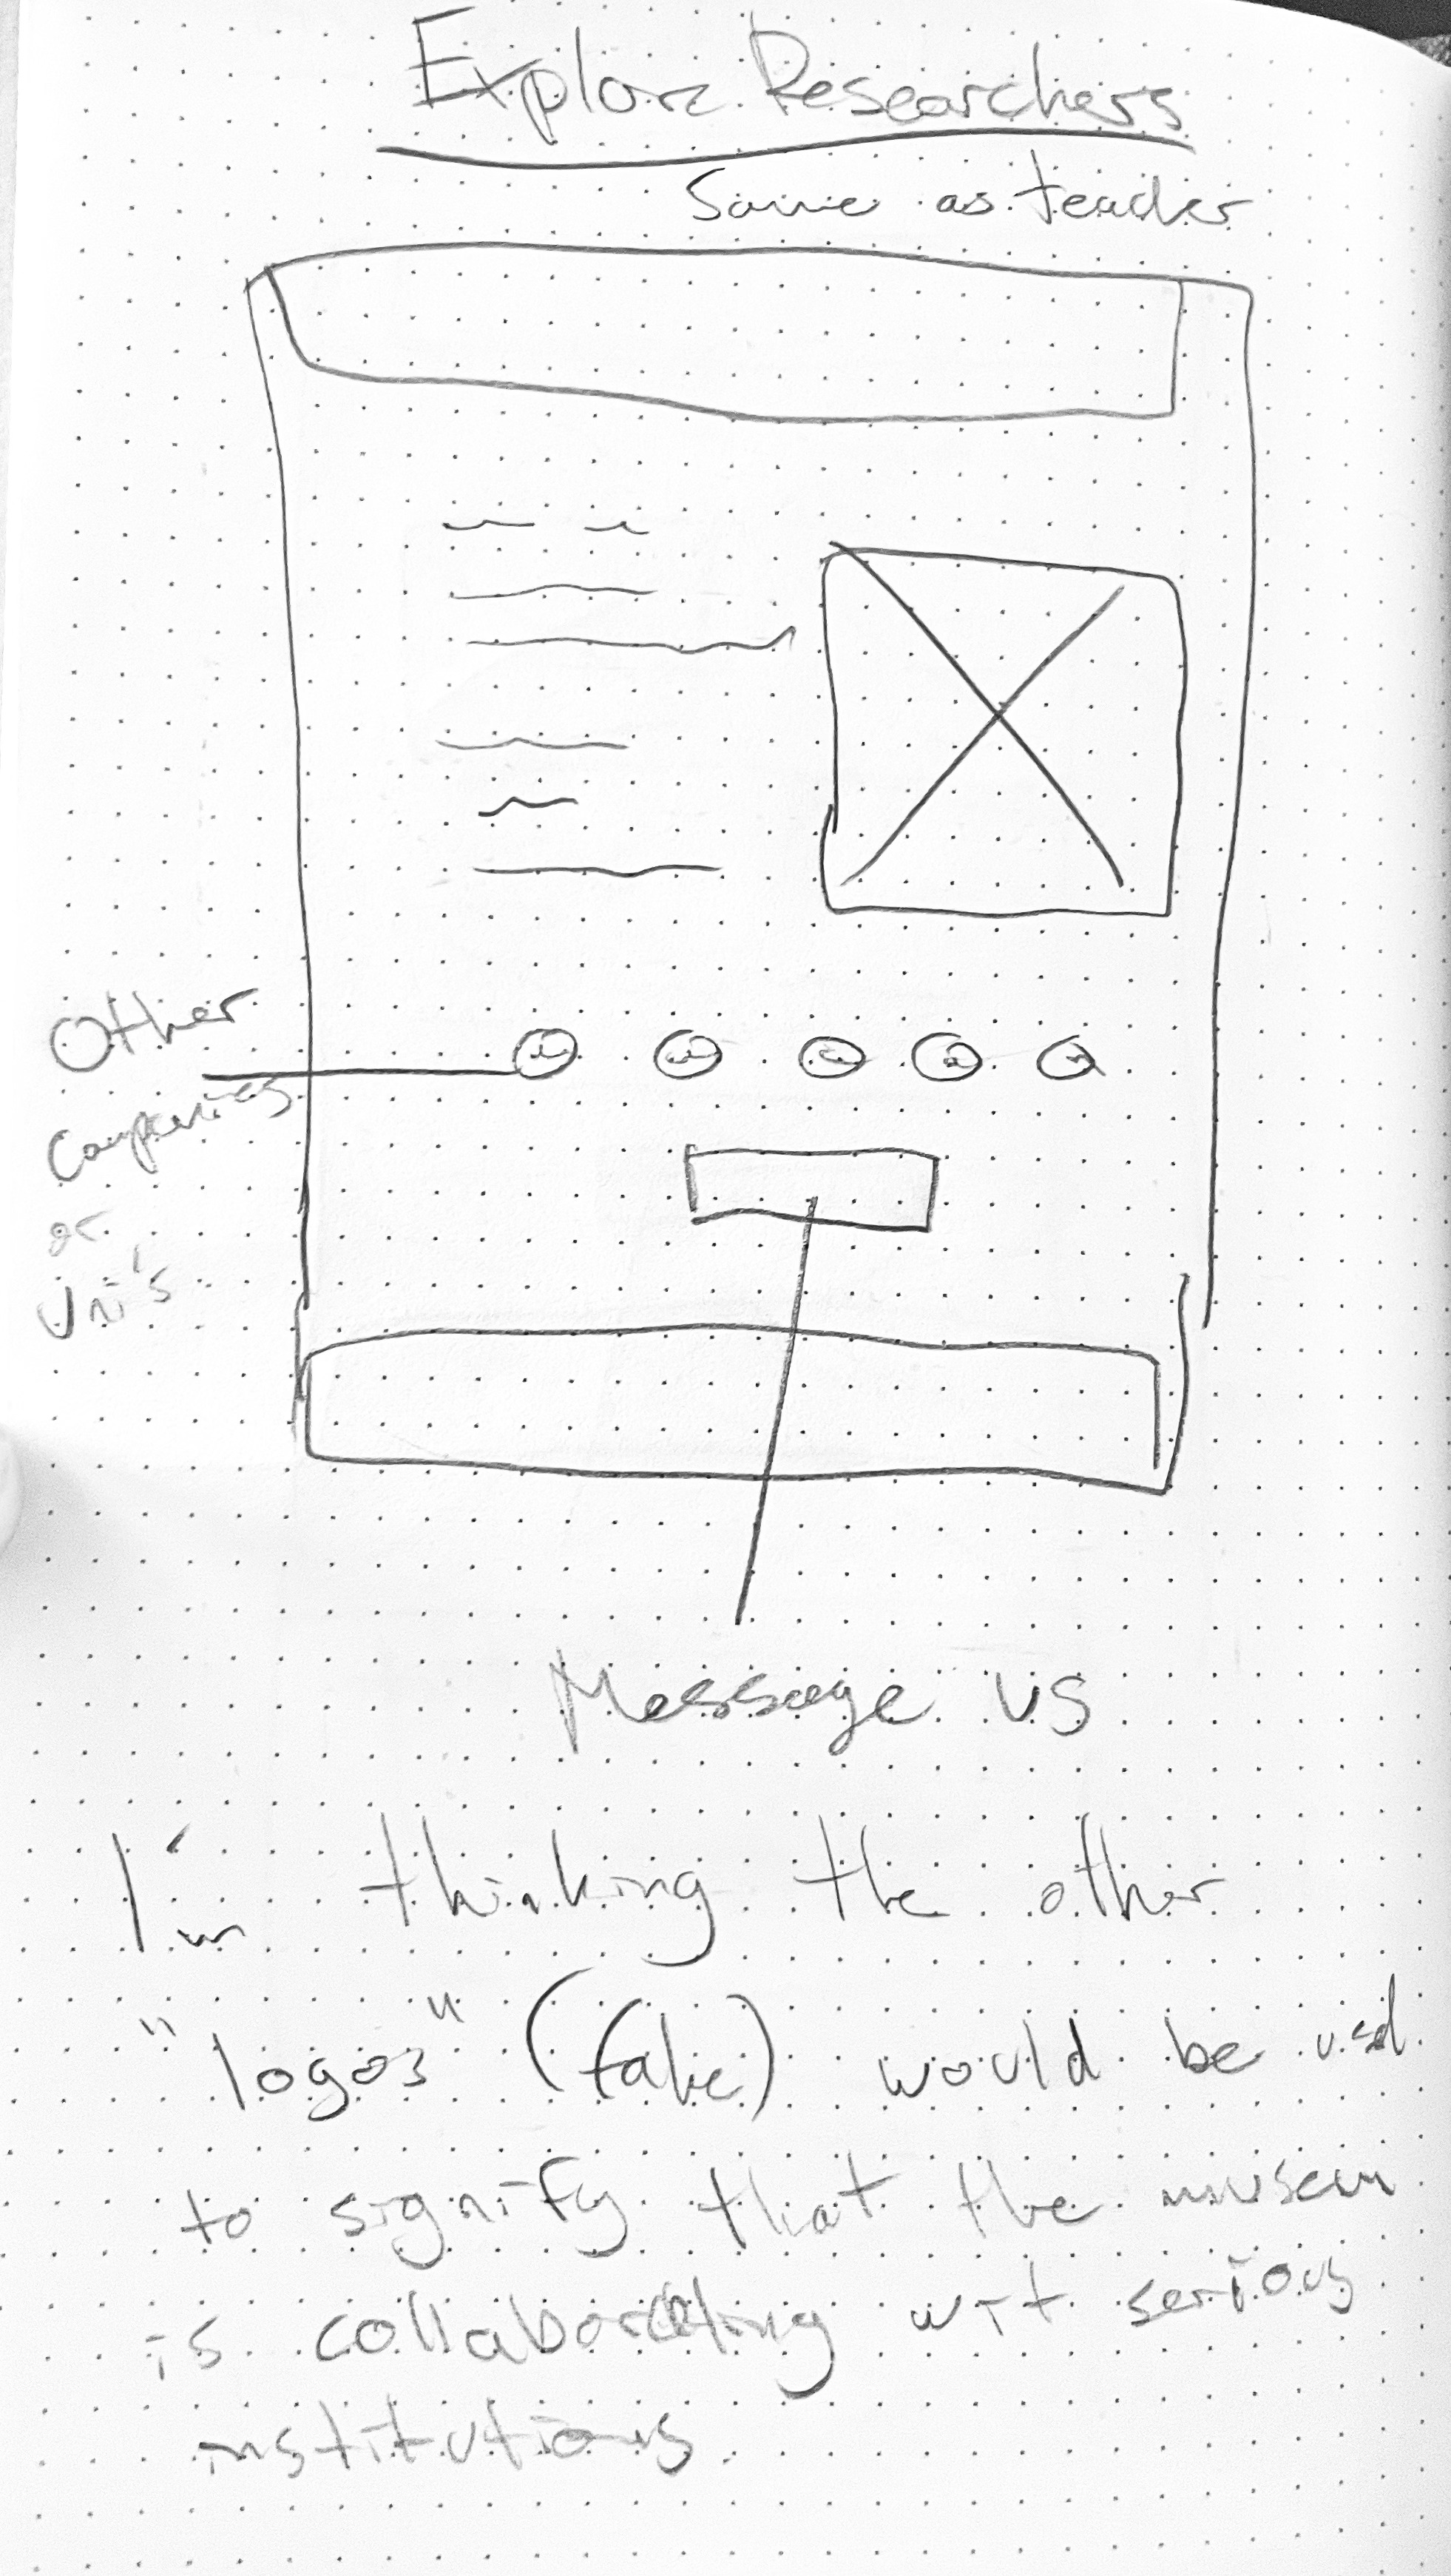 Explore Researchers
Same as teacher
Other
Companies
or
Uni's
Message us
I'm thinking the other
"logos" (fake) would be usd
to signify that the museum
is collaborating wit serious
institutions